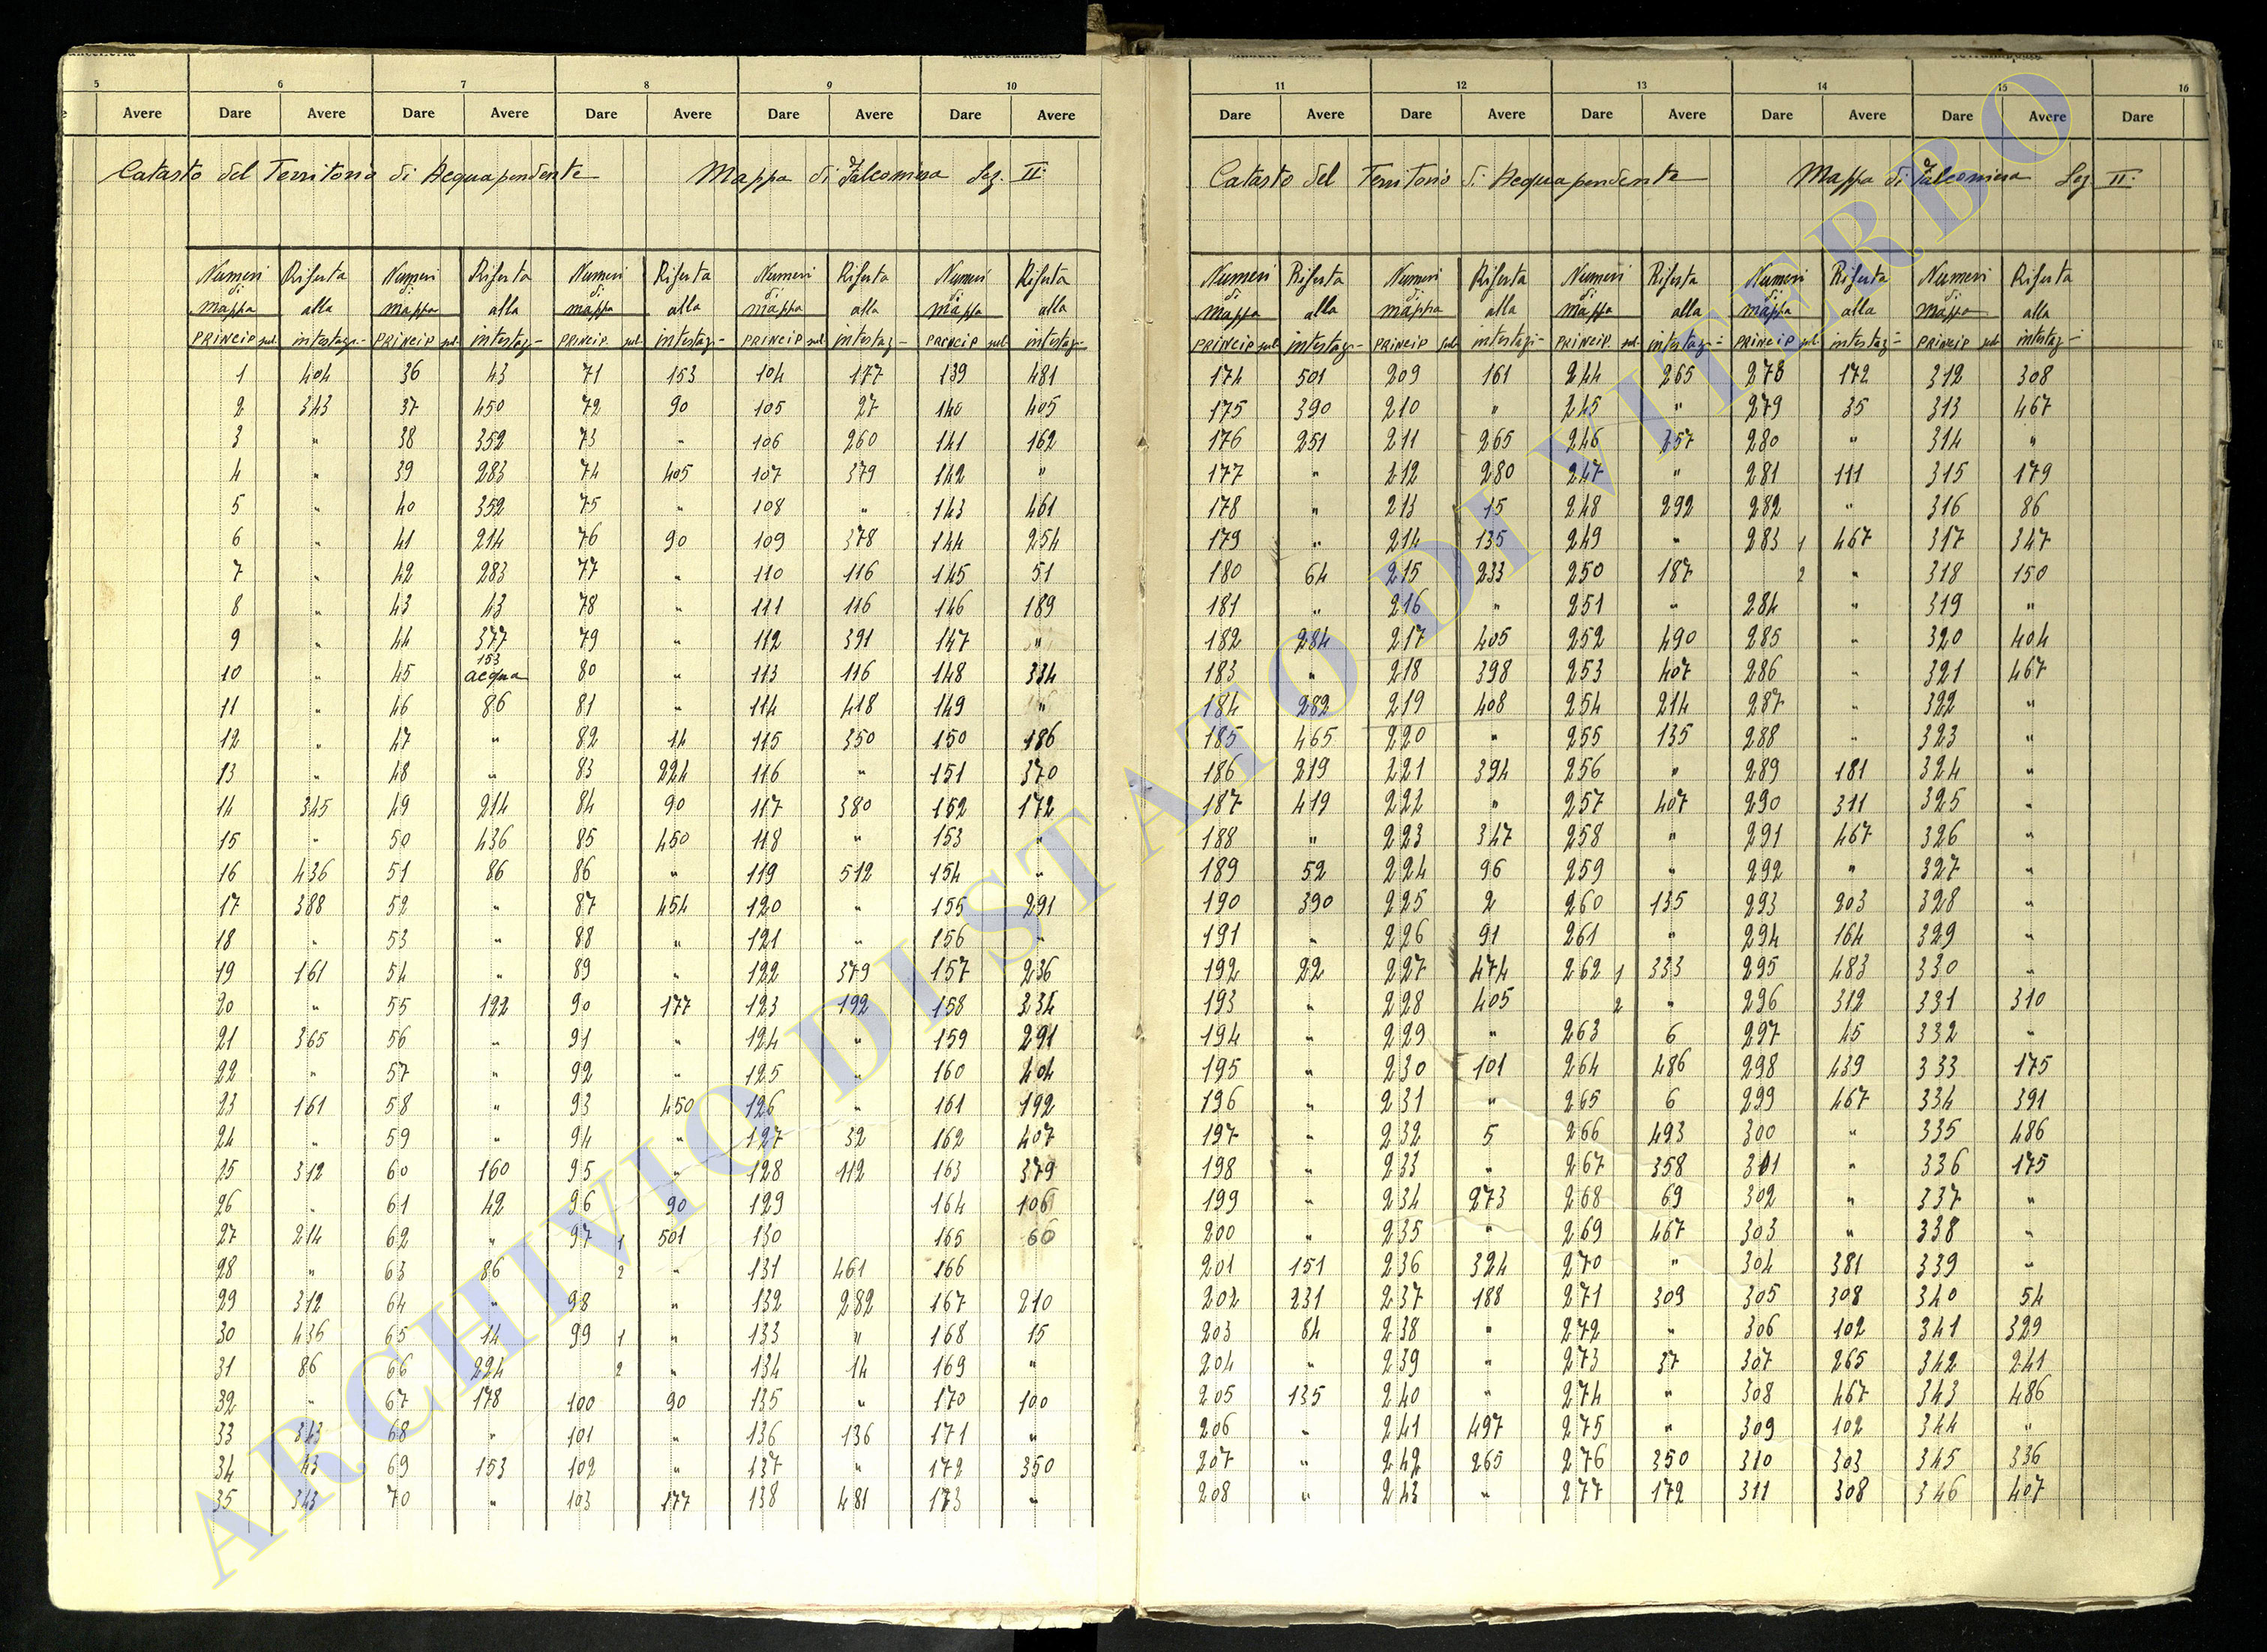 5 6 7 8 9 10
Avere Dare Avere Dare Avere Dare Avere Dare Avere Dare Avere
Catasto del Territorio di Acquapendente Mappa di Falconiera Sez. II.
Numeri di mappa Riferta alla Numeri di mappa Riferta alla Numeri di mappa Riferta alla Numeri di mappa Riferta alla Numeri di mappa Riferta alla
Princip sub intestaz- Princip sub intestaz- Princip. sub intestaz- Princip sub intestaz- Princip sub intestaz-
1 404 36 43 71 153 104 177 139 481
2 343 37 450 72 90 105 27 140 405
3 " 38 352 73 " 106 260 141 162
4 " 39 283 74 405 107 379 142 "
5 " 40 352 75 " 108 " 143 461
6 " 41 214 76 90 109 378 144 254
7 " 42 283 77 " 110 116 145 51
8 " 43 43 78 " 111 116 146 189
9 " 44 377 79 " 112 391 147 "
10 " 45 153 acqua 80 " 113 116 148 334
11 " 46 86 81 " 114 418 149 "
12 " 47 " 82 14 115 350 150 186
13 " 48 " 83 224 116 " 151 370
14 345 49 214 84 90 117 380 152 172
15 " 50 436 85 450 118 " 153 "
16 436 51 86 86 " 119 512 154 "
17 388 52 " 87 454 120 " 155 291
18 " 53 " 88 " 121 " 156 "
19 161 54 " 89 " 122 379 157 236
20 " 55 122 90 177 123 192 158 334
21 365 56 " 91 " 124 " 159 291
22 " 57 " 92 " 125 " 160 404
23 161 58 " 93 450 126 " 161 192
24 " 59 " 94 " 127 32 162 407
25 312 60 160 95 " 128 112 163 379
26 " 61 42 96 90 129 164 106
27 214 62 " 97 1 501 130 165 60
28 " 63 86 2 " 131 461 166
29 312 64 " 98 " 132 282 167 210
30 436 65 14 99 1 " 133 " 168 15
31 86 66 224 2 " 134 14 169 "
32 " 67 178 100 90 135 " 170 100
33 343 68 " 101 " 136 136 171 "
34 43 69 153 102 " 137 " 172 350
35 343 70 " 103 177 138 481 173 "
11 12 13 14 15 16
Dare Avere Dare Avere Dare Avere Dare Avere Dare Avere Dare
Catasto del Territorio di Acquapendente Mappa di Falconiera Sez. II.
Numeri di mappa Riferta alla Numeri di mappa Riferta alla Numeri di mappa Riferta alla Numeri di mappa Riferta alla Numeri di mappa Riferta alla
Princip sub intestaz- Princip sub intestaz- Princip sub intestaz- Princip sub intestaz- Princip sub intestaz-
174 501 209 161 244 265 278 172 312 308
175 390 210 " 245 " 279 35 313 467
176 251 211 265 246 257 280 " 314 "
177 " 212 280 247 " 281 111 315 179
178 " 213 15 248 292 282 " 316 86
179 " 214 135 249 " 283 1 467 317 347
180 64 215 233 250 187 2 " 318 150
181 " 216 " 251 " 284 " 319 "
182 284 217 405 252 490 285 " 320 404
183 " 218 398 253 407 286 " 321 467
184 282 219 408 254 214 287 " 322 "
185 465 220 " 255 135 288 " 323 "
186 219 221 394 256 " 289 181 324 "
187 419 222 " 257 407 290 311 325 "
188 " 223 347 258 " 291 467 326 "
189 52 224 96 259 " 292 " 327 "
190 390 225 2 260 135 293 203 328 "
191 " 226 91 261 " 294 164 329 "
192 22 227 474 262 1 333 295 483 330 "
193 " 228 405 2 " 296 312 331 310
194 " 229 " 263 6 297 45 332 "
195 " 230 101 264 486 298 439 333 175
196 " 231 " 265 6 299 467 334 391
197 " 232 5 266 493 300 " 335 486
198 " 233 " 267 358 301 " 336 175
199 " 234 273 268 69 302 " 337 "
200 " 235 " 269 467 303 " 338 "
201 151 236 324 270 " 304 381 339 "
202 231 237 188 271 309 305 308 340 54
203 84 238 " 272 " 306 102 341 329
204 " 239 " 273 37 307 265 342 241
205 135 240 " 274 " 308 467 343 486
206 " 241 497 275 " 309 102 344 "
207 " 242 265 276 350 310 303 345 336
208 " 243 " 277 172 311 308 346 407
ARCHIVIO DI STATO DI VITERBO